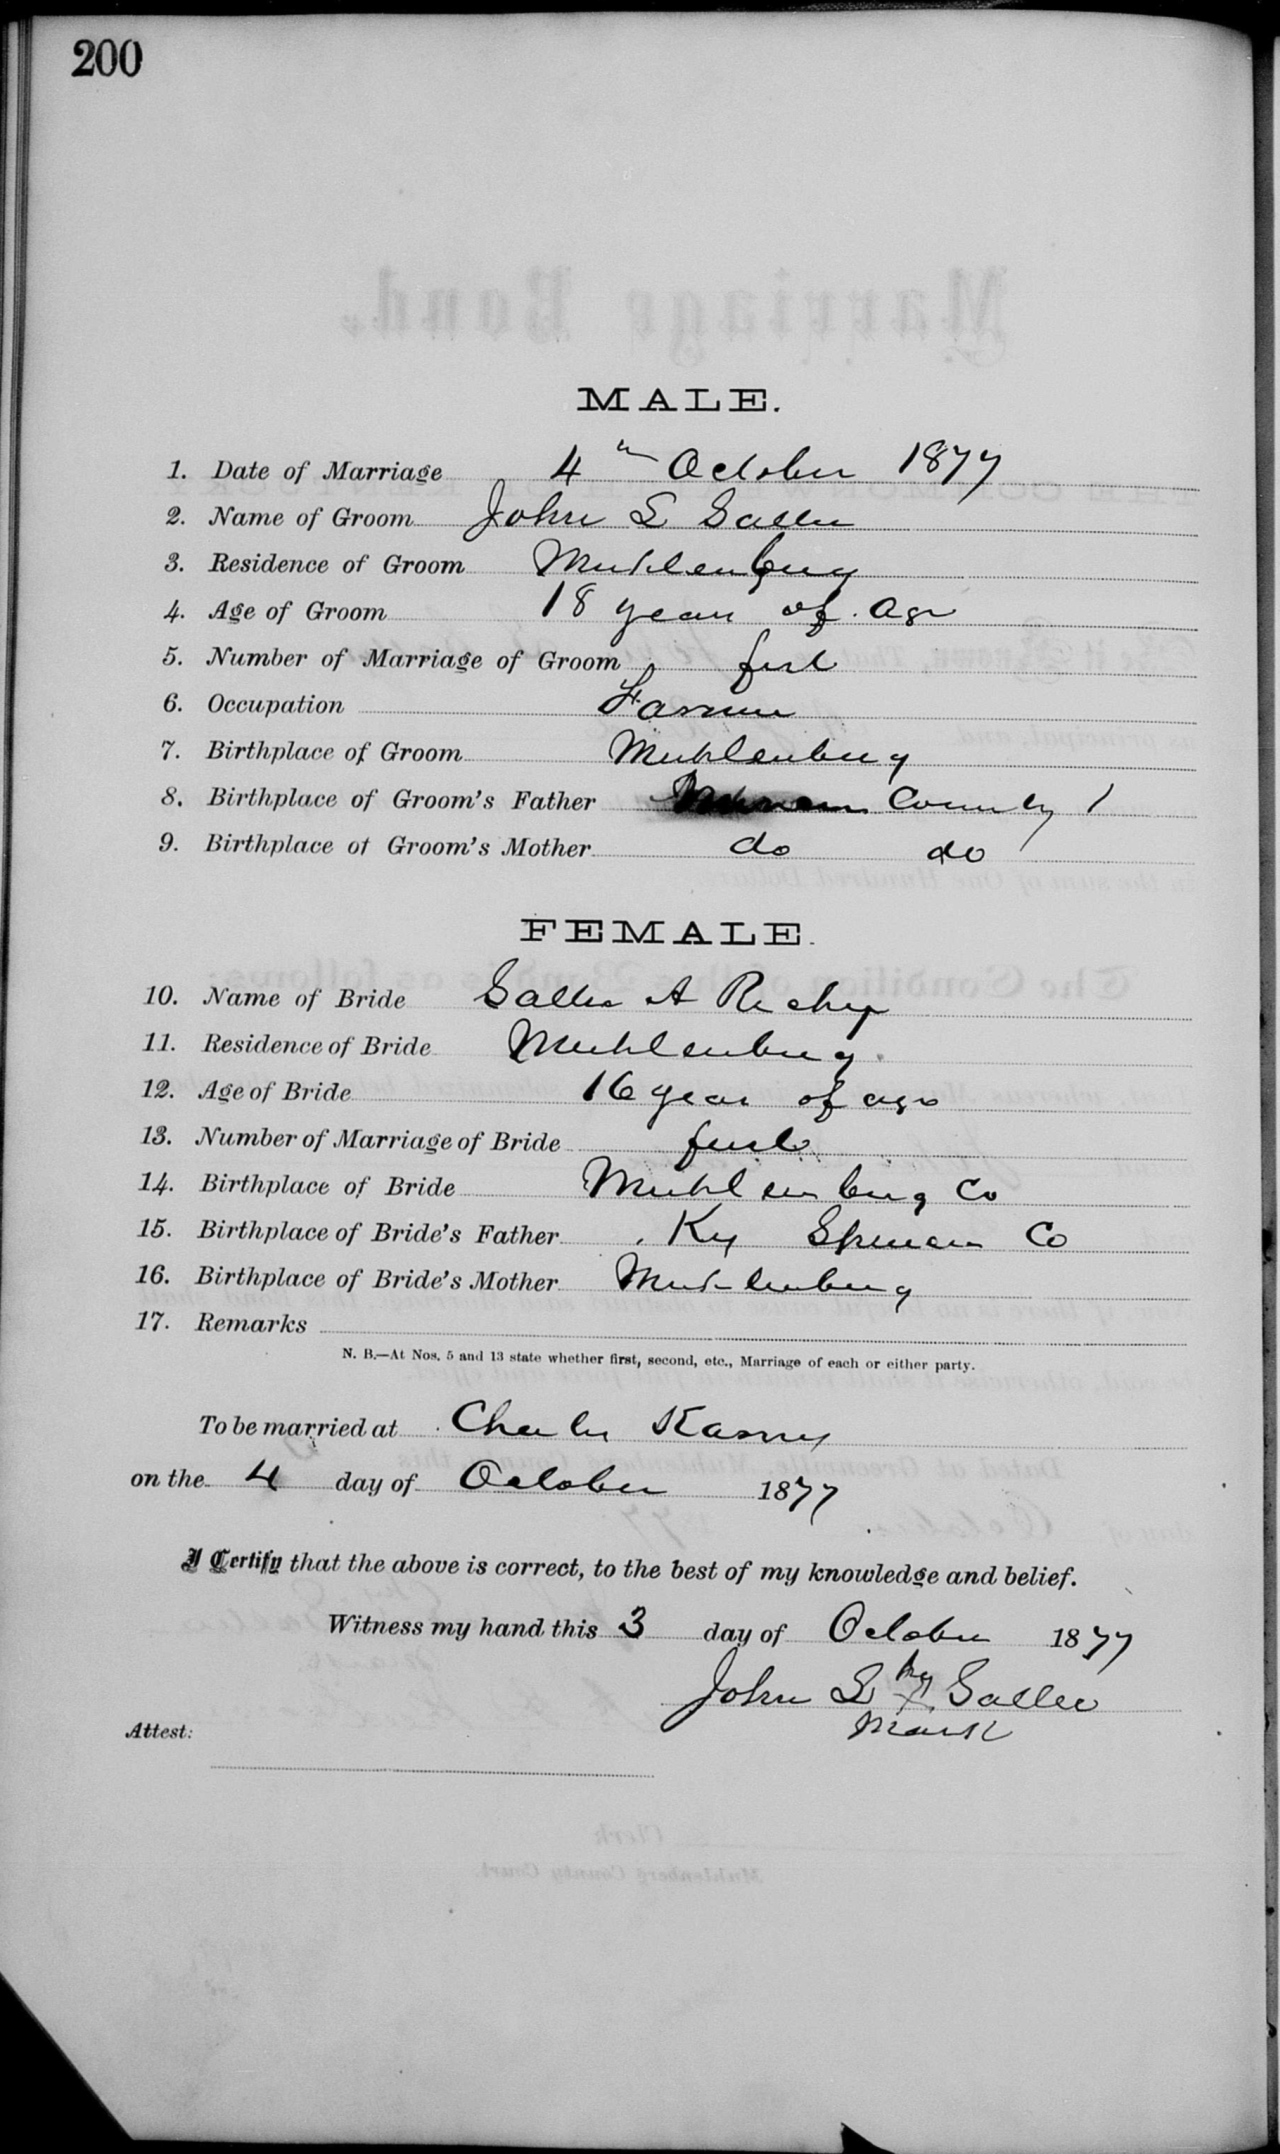 200
MALE.
1. Date of Marriage 4th October 1877
2. Name of Groom John S Sallee
3. Residence of Groom Muhlenburg
4. Age of Groom 18 years of Age
5. Number of Marriage of Groom first
6. Occupation Farmer
7. Birthplace of Groom Muhlenburg
8. Birthplace of Groom's Father County
9. Birthplace of Groom's Mother do do
FEMALE.
10. Name of Bride A
11. Residence of Bride Muhlenburg.
12. Age of Bride 16 year of age
13. Number of Marriage of Bride first
14. Birthplace of Bride Muhlenburg Co
15. Birthplace of Bride's Father Ky Co
16. Birthplace of Bride's Mother Muhlenburg
17. Remarks
N. B.—At Nos. 5 and 13 state whether first, second, etc., Marriage of each or either party.
To be married at
on the 4 day of October 1877
I Certify that the above is correct, to the best of my knowledge and belief.
Witness my hand this 3 day of October 1877
John S his X Sallee
mark
Attest: